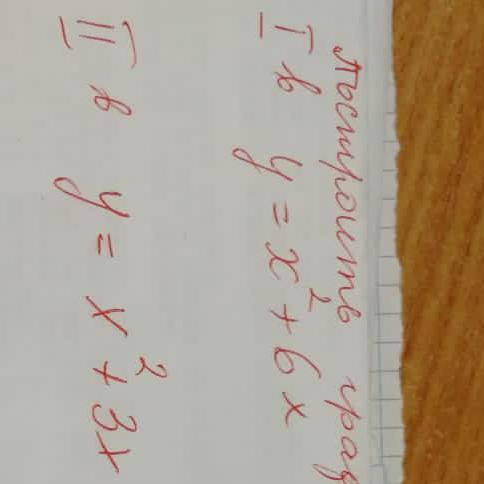 Построить граф
I в y = x² + 6x
II в y = x² + 3x